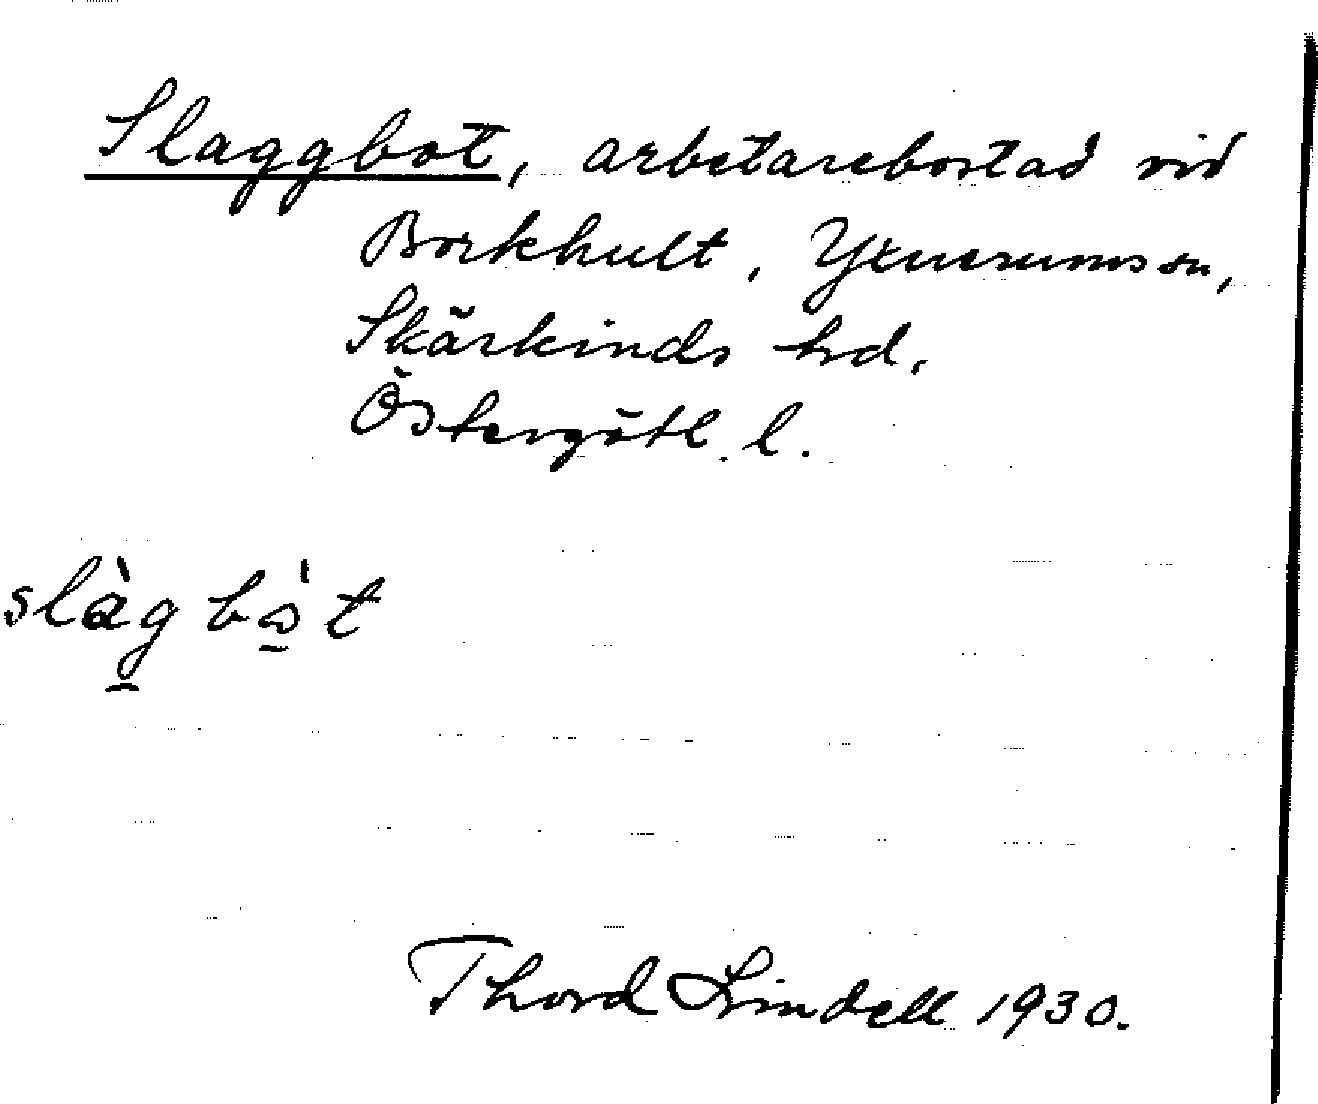 Slaggbot, arbetarebostad vid
Borkhult, Yxnerums sn,
Skärkinds hd,
Östergötl. l.
slàg bò̱t
Thord Lindell 1930.